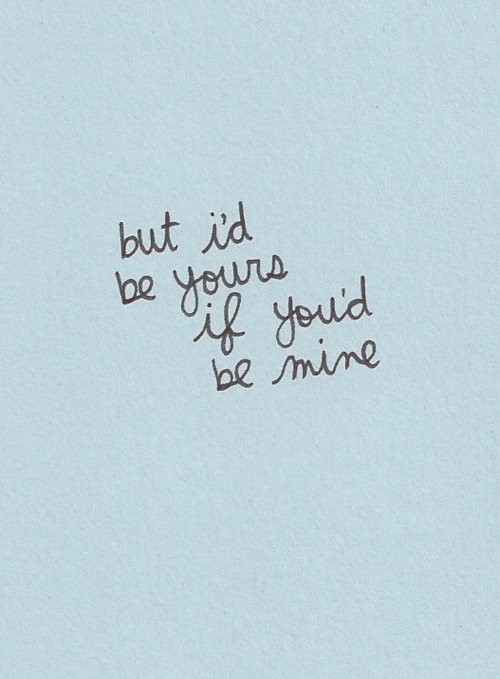 but i'd
be yours
if you'd
be mine